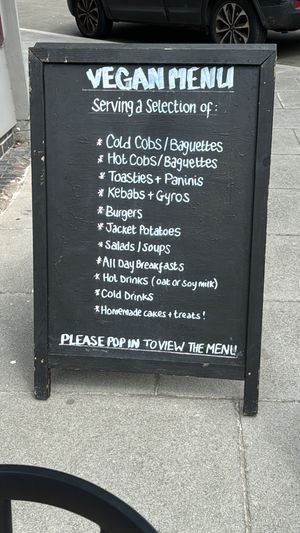 VEGAN MENU
Serving a Selection of:
* Cold Cobs/Baguettes
* Hot Cobs/Baguettes
* Toasties + Paninis
* Kebabs + Gyros
* Burgers
* Jacket Potatoes
* Salads/Soups
* All Day Breakfasts
* Hot Drinks (oat or soy milk)
* Cold Drinks
* Homemade cakes + treats!
PLEASE POP IN TO VIEW THE MENU!